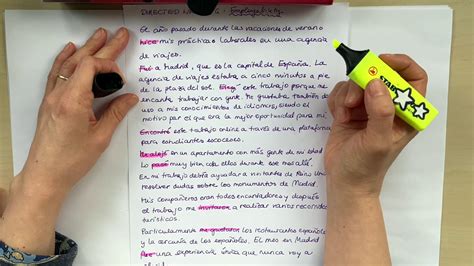 DIRECTED WRITING: Employability
El año pasado durante las vacaciones de verano
hice mis prácticas laborales en una agencia
de viajes.
Fui a Madrid, que es la capital de España. La
agencia de viajes estaba a cinco minutos a pie
de la plaza del sol. este trabajo porque me
encanta trabajar con gente. Me gustaba también
uso a mis conocimientos de idiomas, siendo el
motivo por el que era la mejor oportunidad para mí.
Encontré este trabajo online a través de una plataforma
para estudiantes escoceses.
Me alojé en un apartamento con más gente de mi edad
Lo pasé muy bien con ellos durante ese mes allí.
En mi trabajo debía ayudar a visitantes de Reino Unido
resolver dudas sobre los monumentos de Madrid
Mis compañeros eran todos encantadores y después
el trabajo me a realizar varios recorridos
turísticos.
Particularmente me gustaron los restaurantes españoles
y la cercanía de los españoles. El mes en Madrid
fue una experiencia única que nunca voy a
STABILO